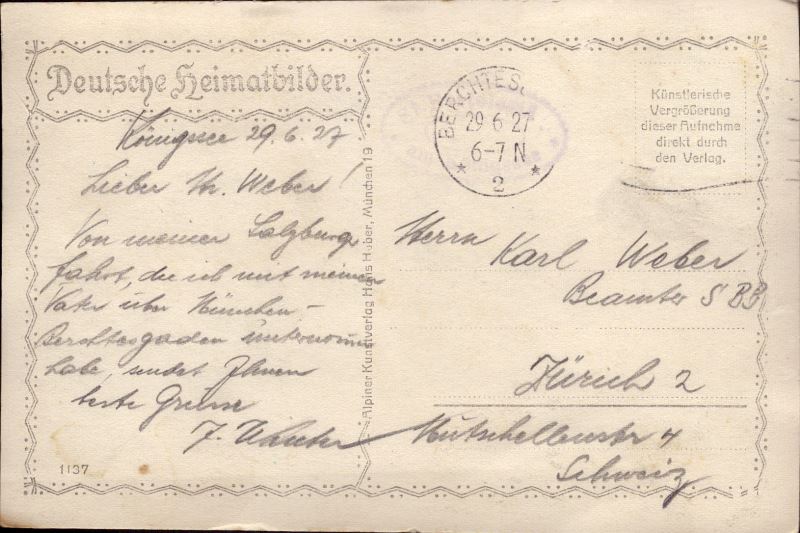 Deutsche Heimatbilder.
Königssee 29.6.27
Lieber Hr. Weber!
Von meiner Salzburger
fahrt, die ich mit meinem
Vater über München-
Berchtesgaden unternommen
habe, sendet Ihnen
beste Grüsse
J.
1137
Alpiner Kunstverlag Hans Huber, München 19
BERCHTES
29 6 27
6-7 N
* 2 *
Künstlerische
Vergrößerung
dieser Aufnahme
direkt durch
den Verlag.
Herrn
Karl Weber
Beamter S B B
Zürich 2
Mutschellenstr 4
Schweiz